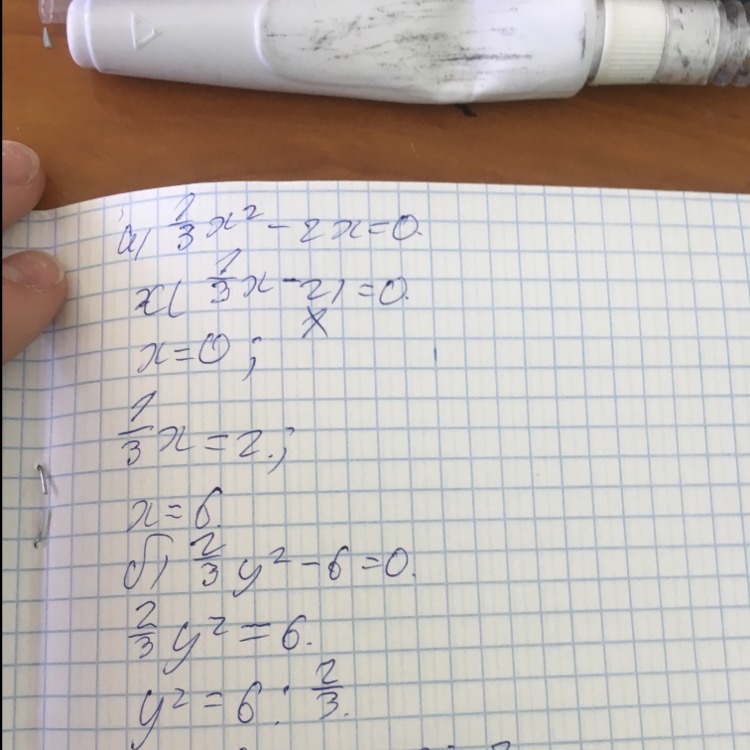 а) 1/3 x² - 2x = 0.
x( 1/3 x - 2) = 0.
x
x = 0 ;
1/3 x = 2.;
x = 6.
б) 2/3 y² - 6 = 0.
2/3 y² = 6.
y² = 6 : 2/3.